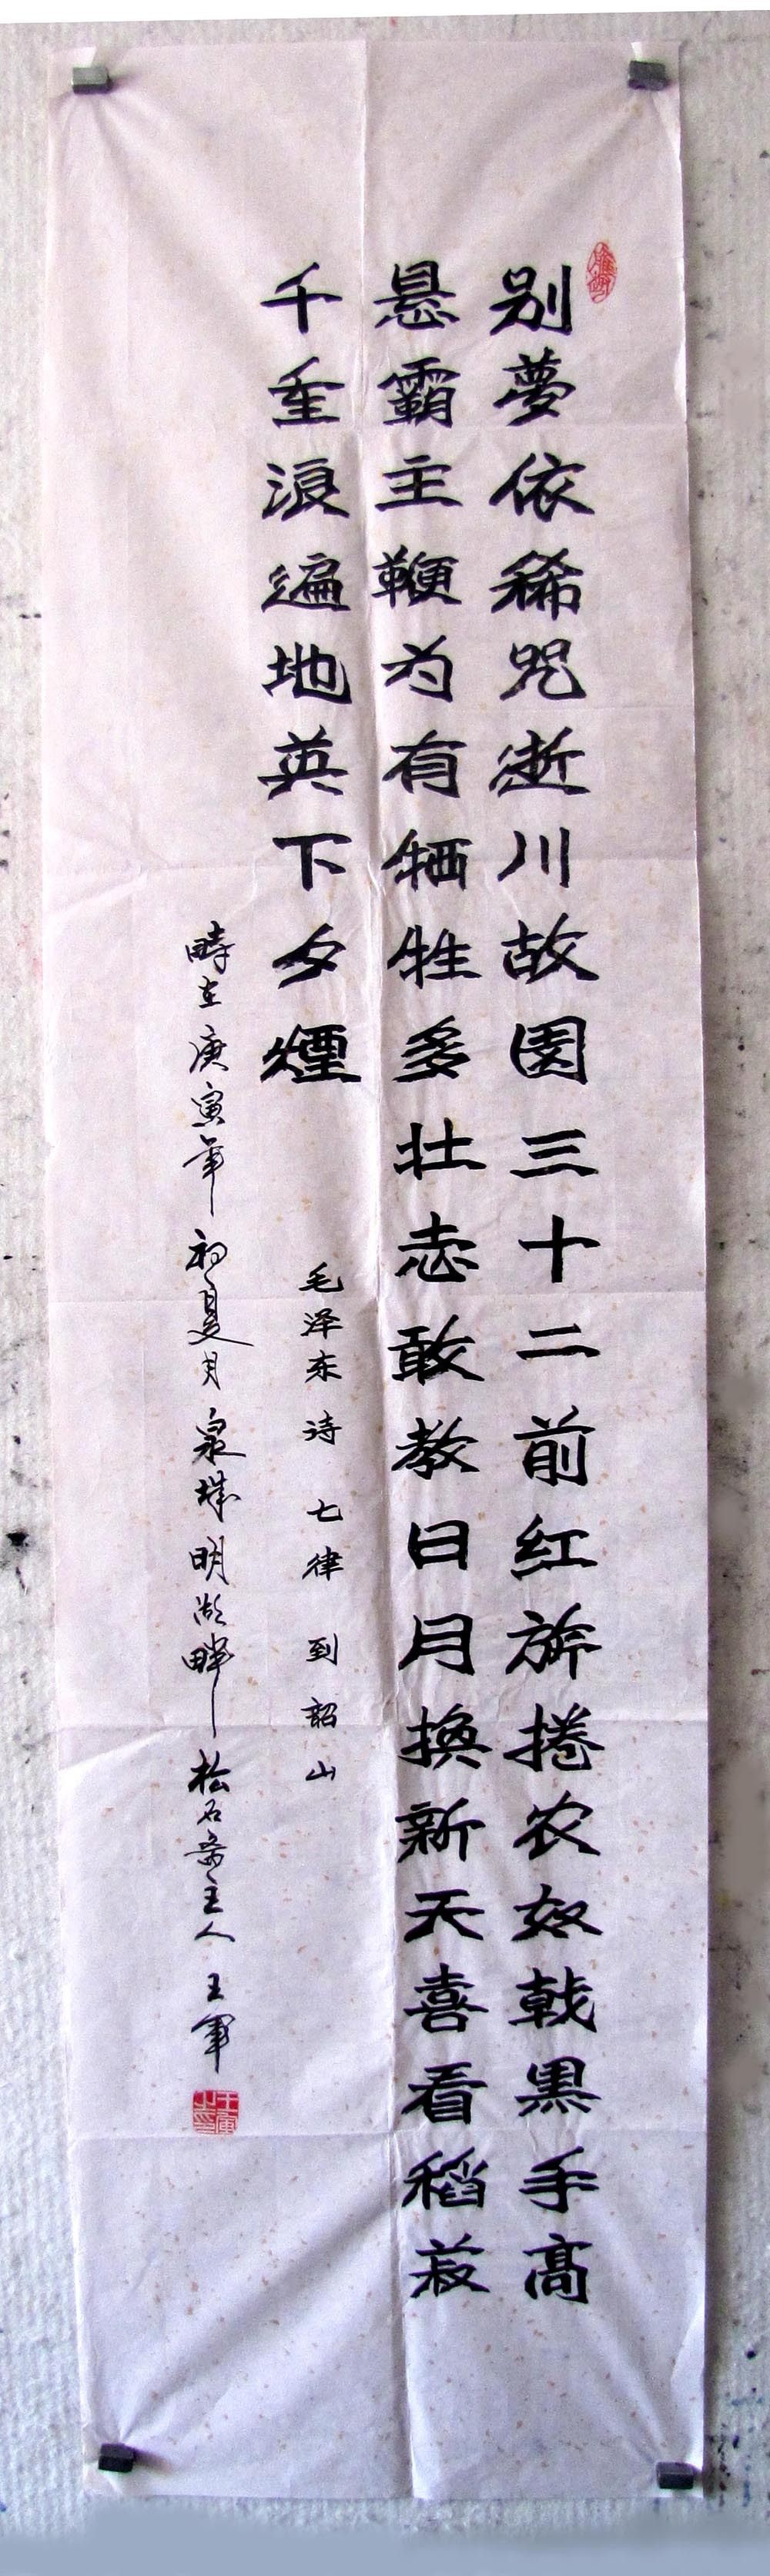 别夢依稀咒逝川故園三十二前红旂捲农奴戟黑手高
悬霸主鞭为有牺牲多壮志敢教日月换新天喜看稻菽
千重浪遍地英下夕煙
毛泽东诗 七律 到韶山
時在庚寅年初夏月泉城明湖畔松石斋主人王軍
王軍之印